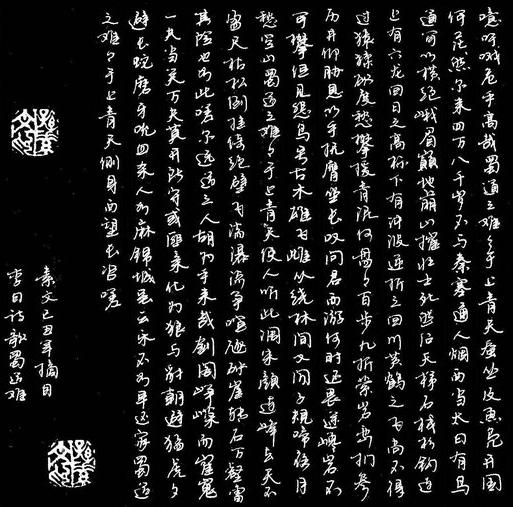 噫吁戏危乎高哉蜀道之难々于上青天蚕丛及鱼凫开国
何茫然尔来四万八千岁不与秦塞通人烟西当太白有鸟
道可以横绝峨眉巅地崩山摧壮士死然后天梯石栈相钩连
上有六龙回日之高标下有冲波逆折之回川黄鹤之飞尚不得
过猿猱欲度愁攀援青泥何盘々百步九折萦岩峦扪参
历井仰胁息以手抚膺坐长叹问君西游何时还畏途巉岩不
可攀但见悲鸟号古木雄飞雌从绕林间又闻子规啼夜月
愁空山蜀道之难々于上青天使人听此凋朱颜连峰去天不
盈尺枯松倒挂倚绝壁飞湍瀑流争喧豗砯崖转石万壑雷
其险也如此嗟尔远道之人胡为乎来哉剑阁峥嵘而崔嵬
一夫当关万夫莫开所守或匪亲化为狼与豺朝避猛虎夕
避长蛇磨牙吮血杀人如麻锦城虽云乐不如早还家蜀道
之难々于上青天侧身西望长咨嗟
素文己丑年摘自
李白诗歌蜀道难